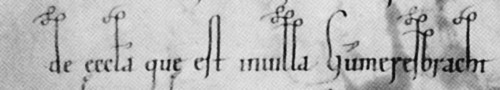 de eccła que est inuilla Humeresbracht